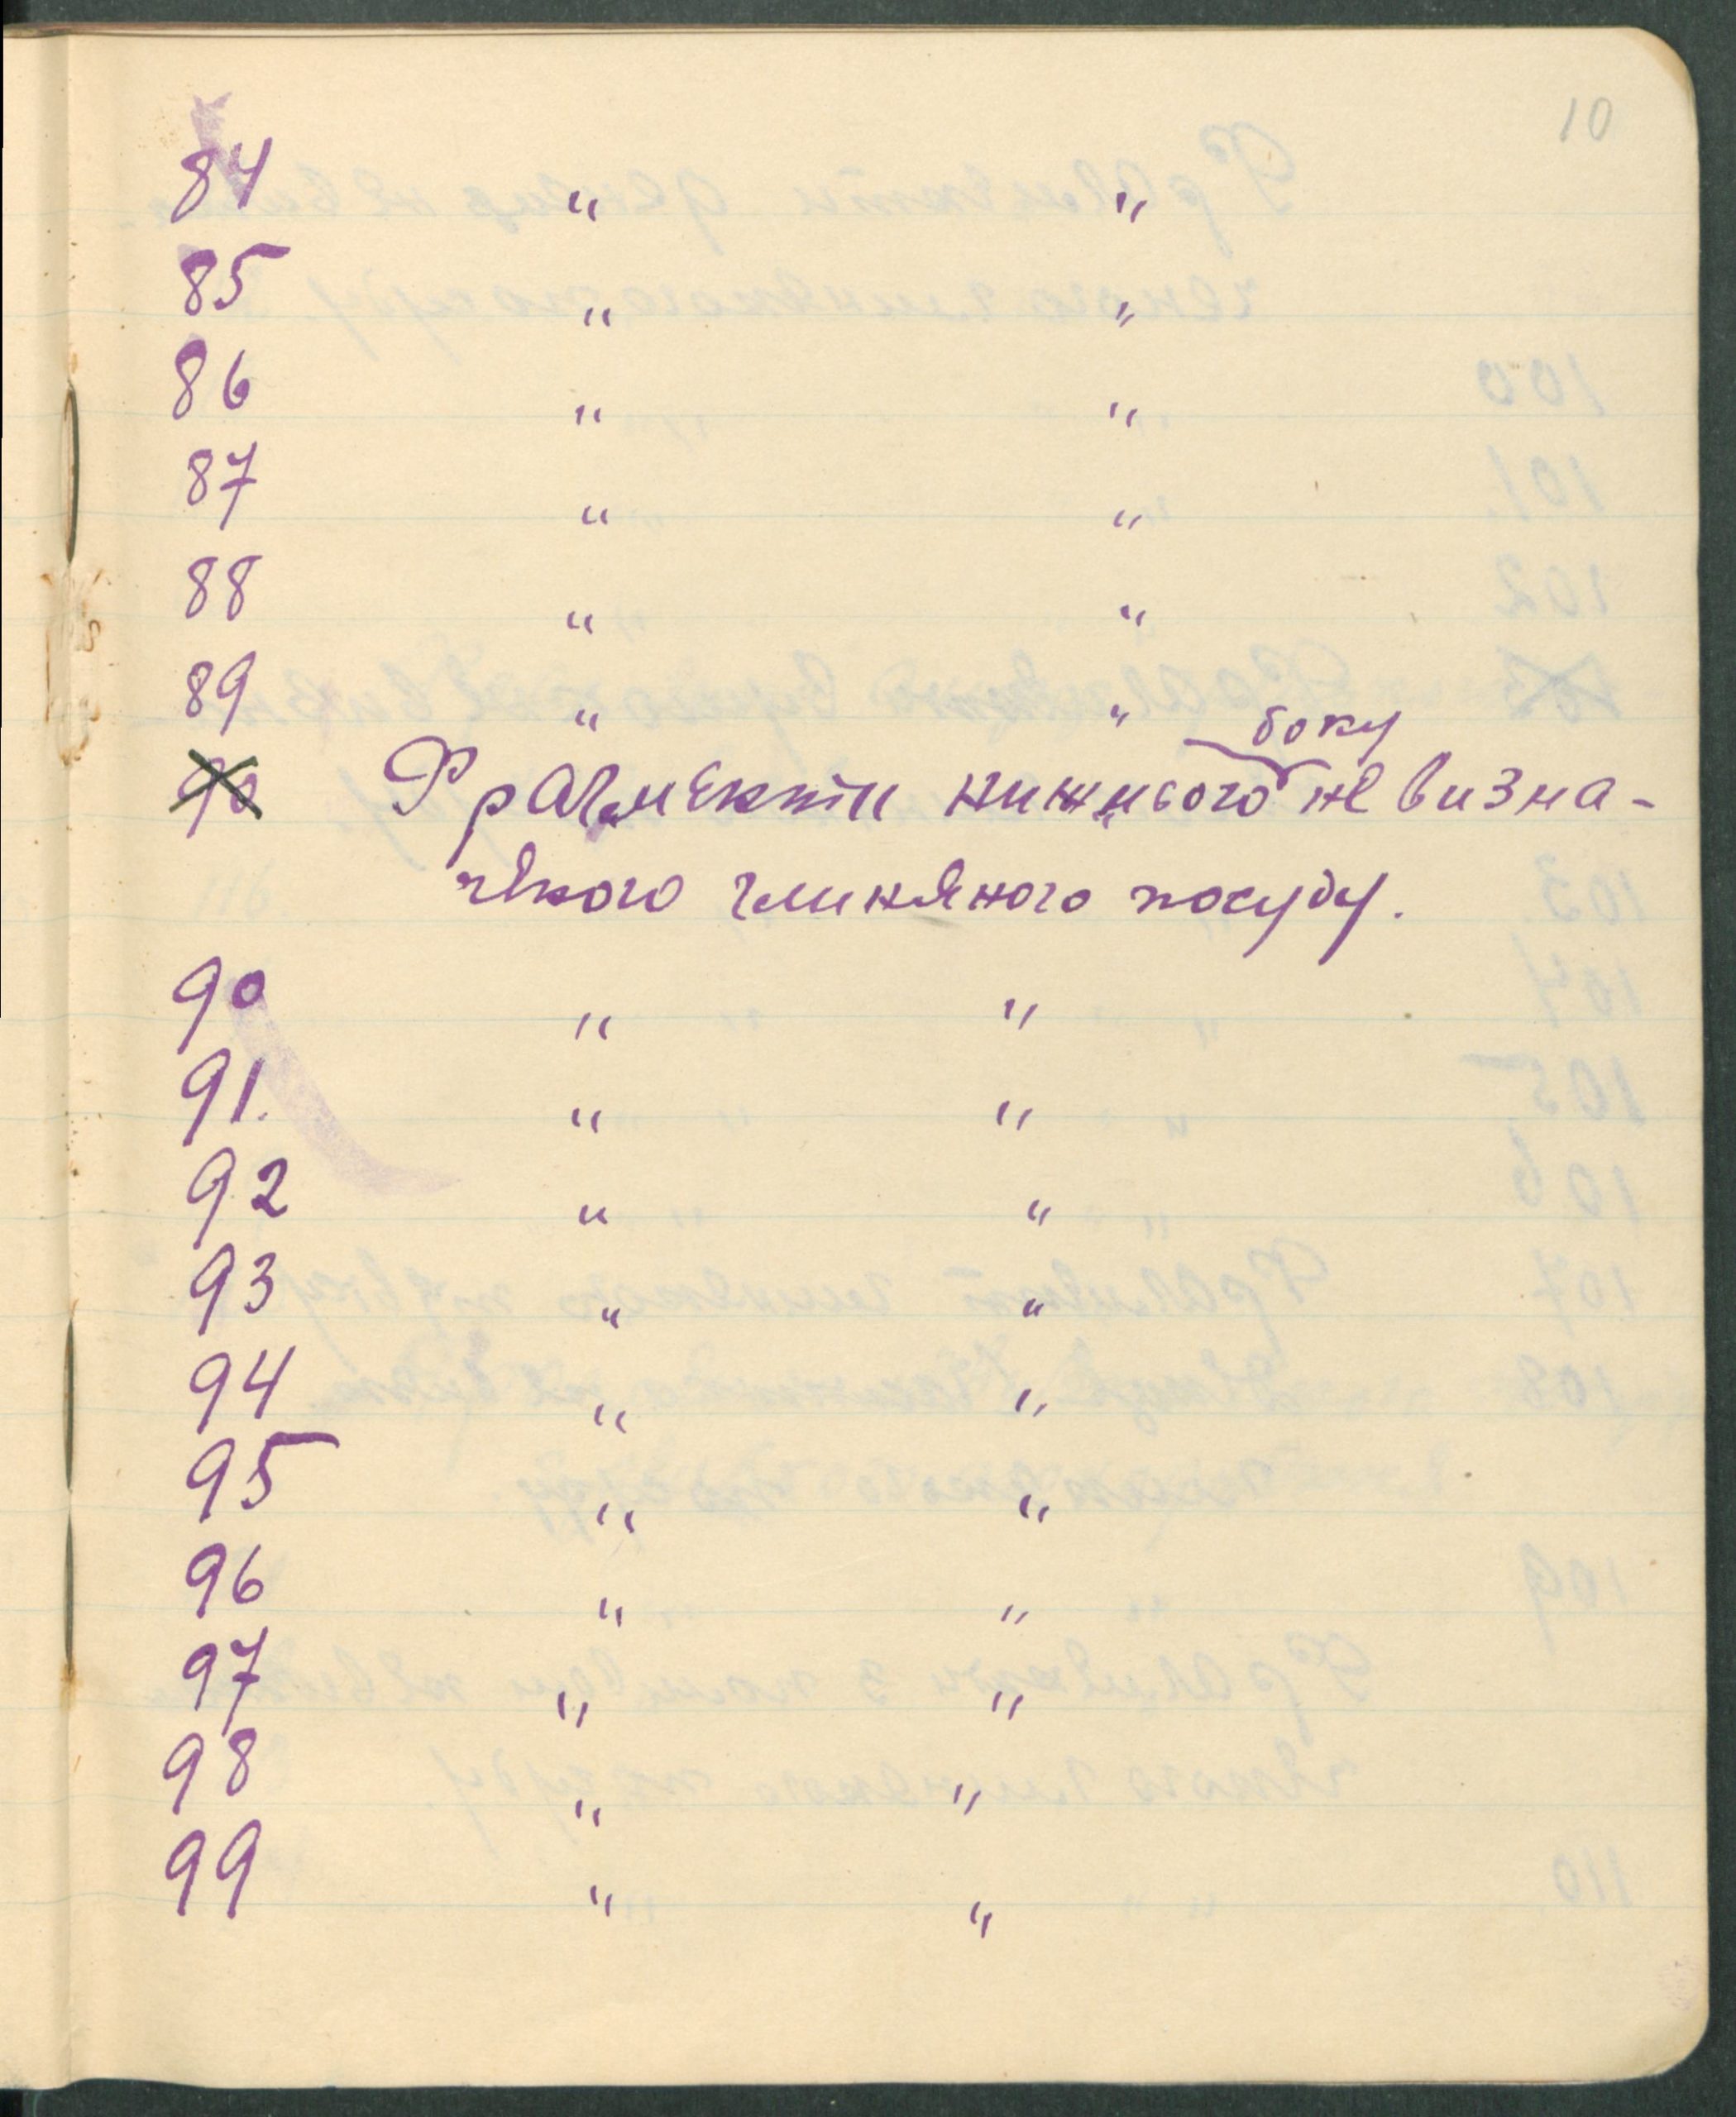 10
84 " "
85 " "
86 " "
87 " "
88 " "
89 " "
боку
90 Фрагменти нижнього не визна-
ченого глиняного посуду.
90 " "
91. " "
92 " "
93 " "
94 " "
95 " "
96 " "
97 " "
98 " "
99 " "